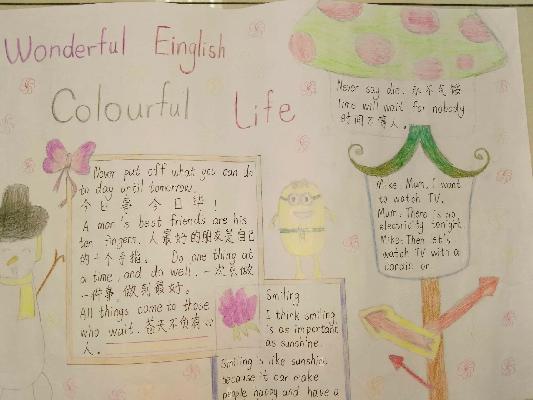 Wonderful Einglish
Colourful Life
Never say die. 永不气馁
time will wait for nobody
时间不等人。
Never put off what you can do
to day until tomorrow.
今日事今日毕!
A man's best friends are his
ten fingers. 人最好的朋友是自己
的十个手指。 Do one thing at
a time, and do well. 一次只做
一件事,做到最好。
All things come to those
who wait. 苍天不负有心
人。
Mike: Mum, I want
to watch TV.
Mum: There is no
electricity tonight.
Mike: Then let's
watch TV with a
candle on
Smiling
I think smiling
is as important
as sunshine.
Smiling is like sunshine
because it can make
people happy and have a